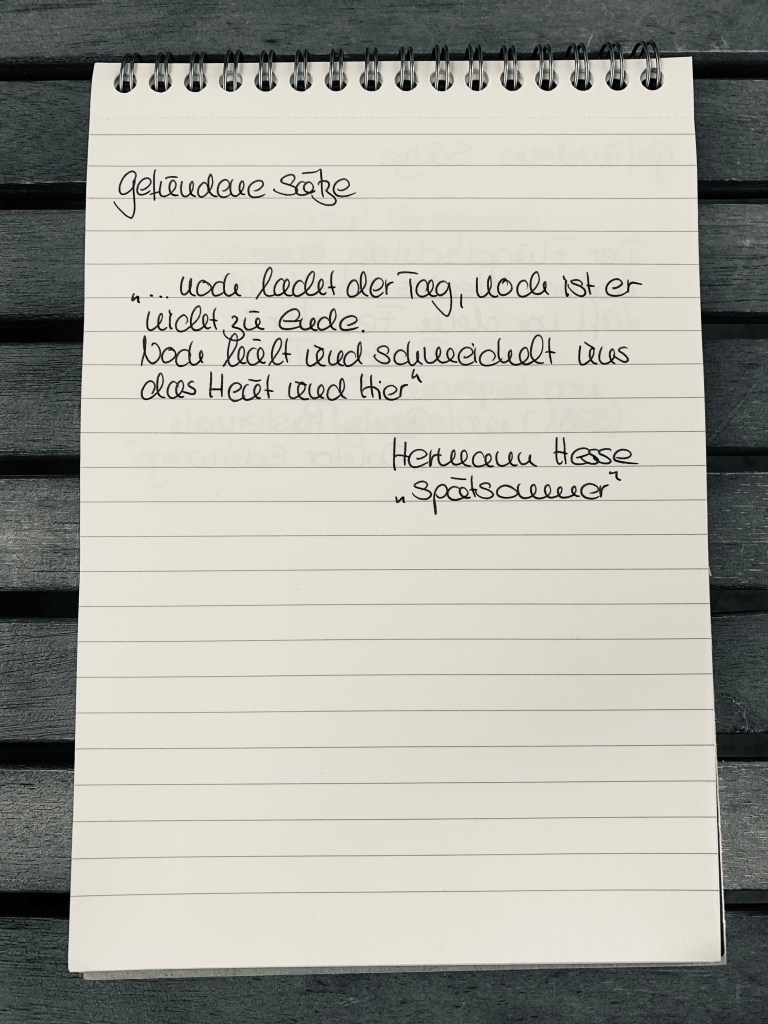 Gefundene Sätze
„... noch lacht der Tag, noch ist er
nicht zu Ende.
Noch hält und schmeichelt uns
das Heut und Hier“
Hermann Hesse
„Spätsommer“